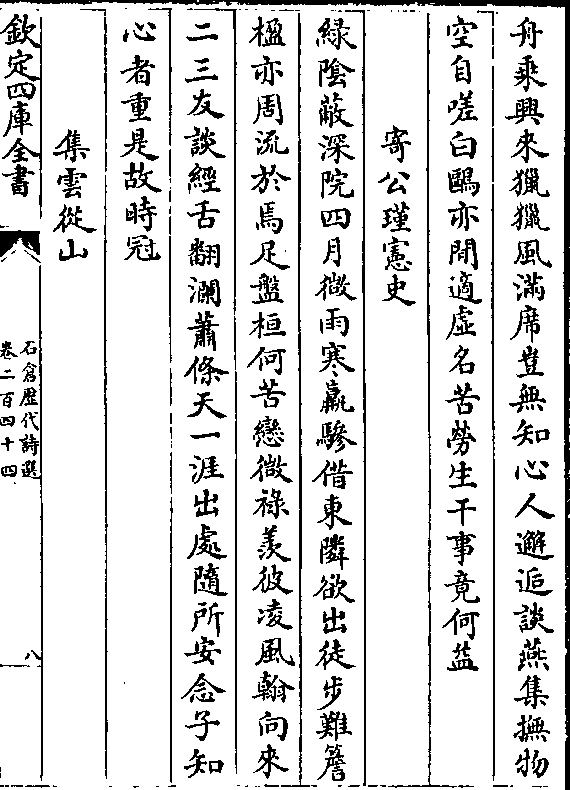 舟乘興來獵獵風滿席豈無知心人邂逅談燕集撫物
空自嗟白鷗亦閒適虛名苦勞生干事竟何益
寄公瑾憲史
緑陰蔽深院四月微雨寒羸驂借東隣欲出徒步難簷
楹亦周流於焉足盤桓何苦戀微祿羨彼凌風翰向來
二三友談經舌翻瀾蕭條天一涯出處隨所安念子知
心者重是故時冠
集雲從山
欽定四庫全書
石倉歷代詩選
卷二百四十四
八